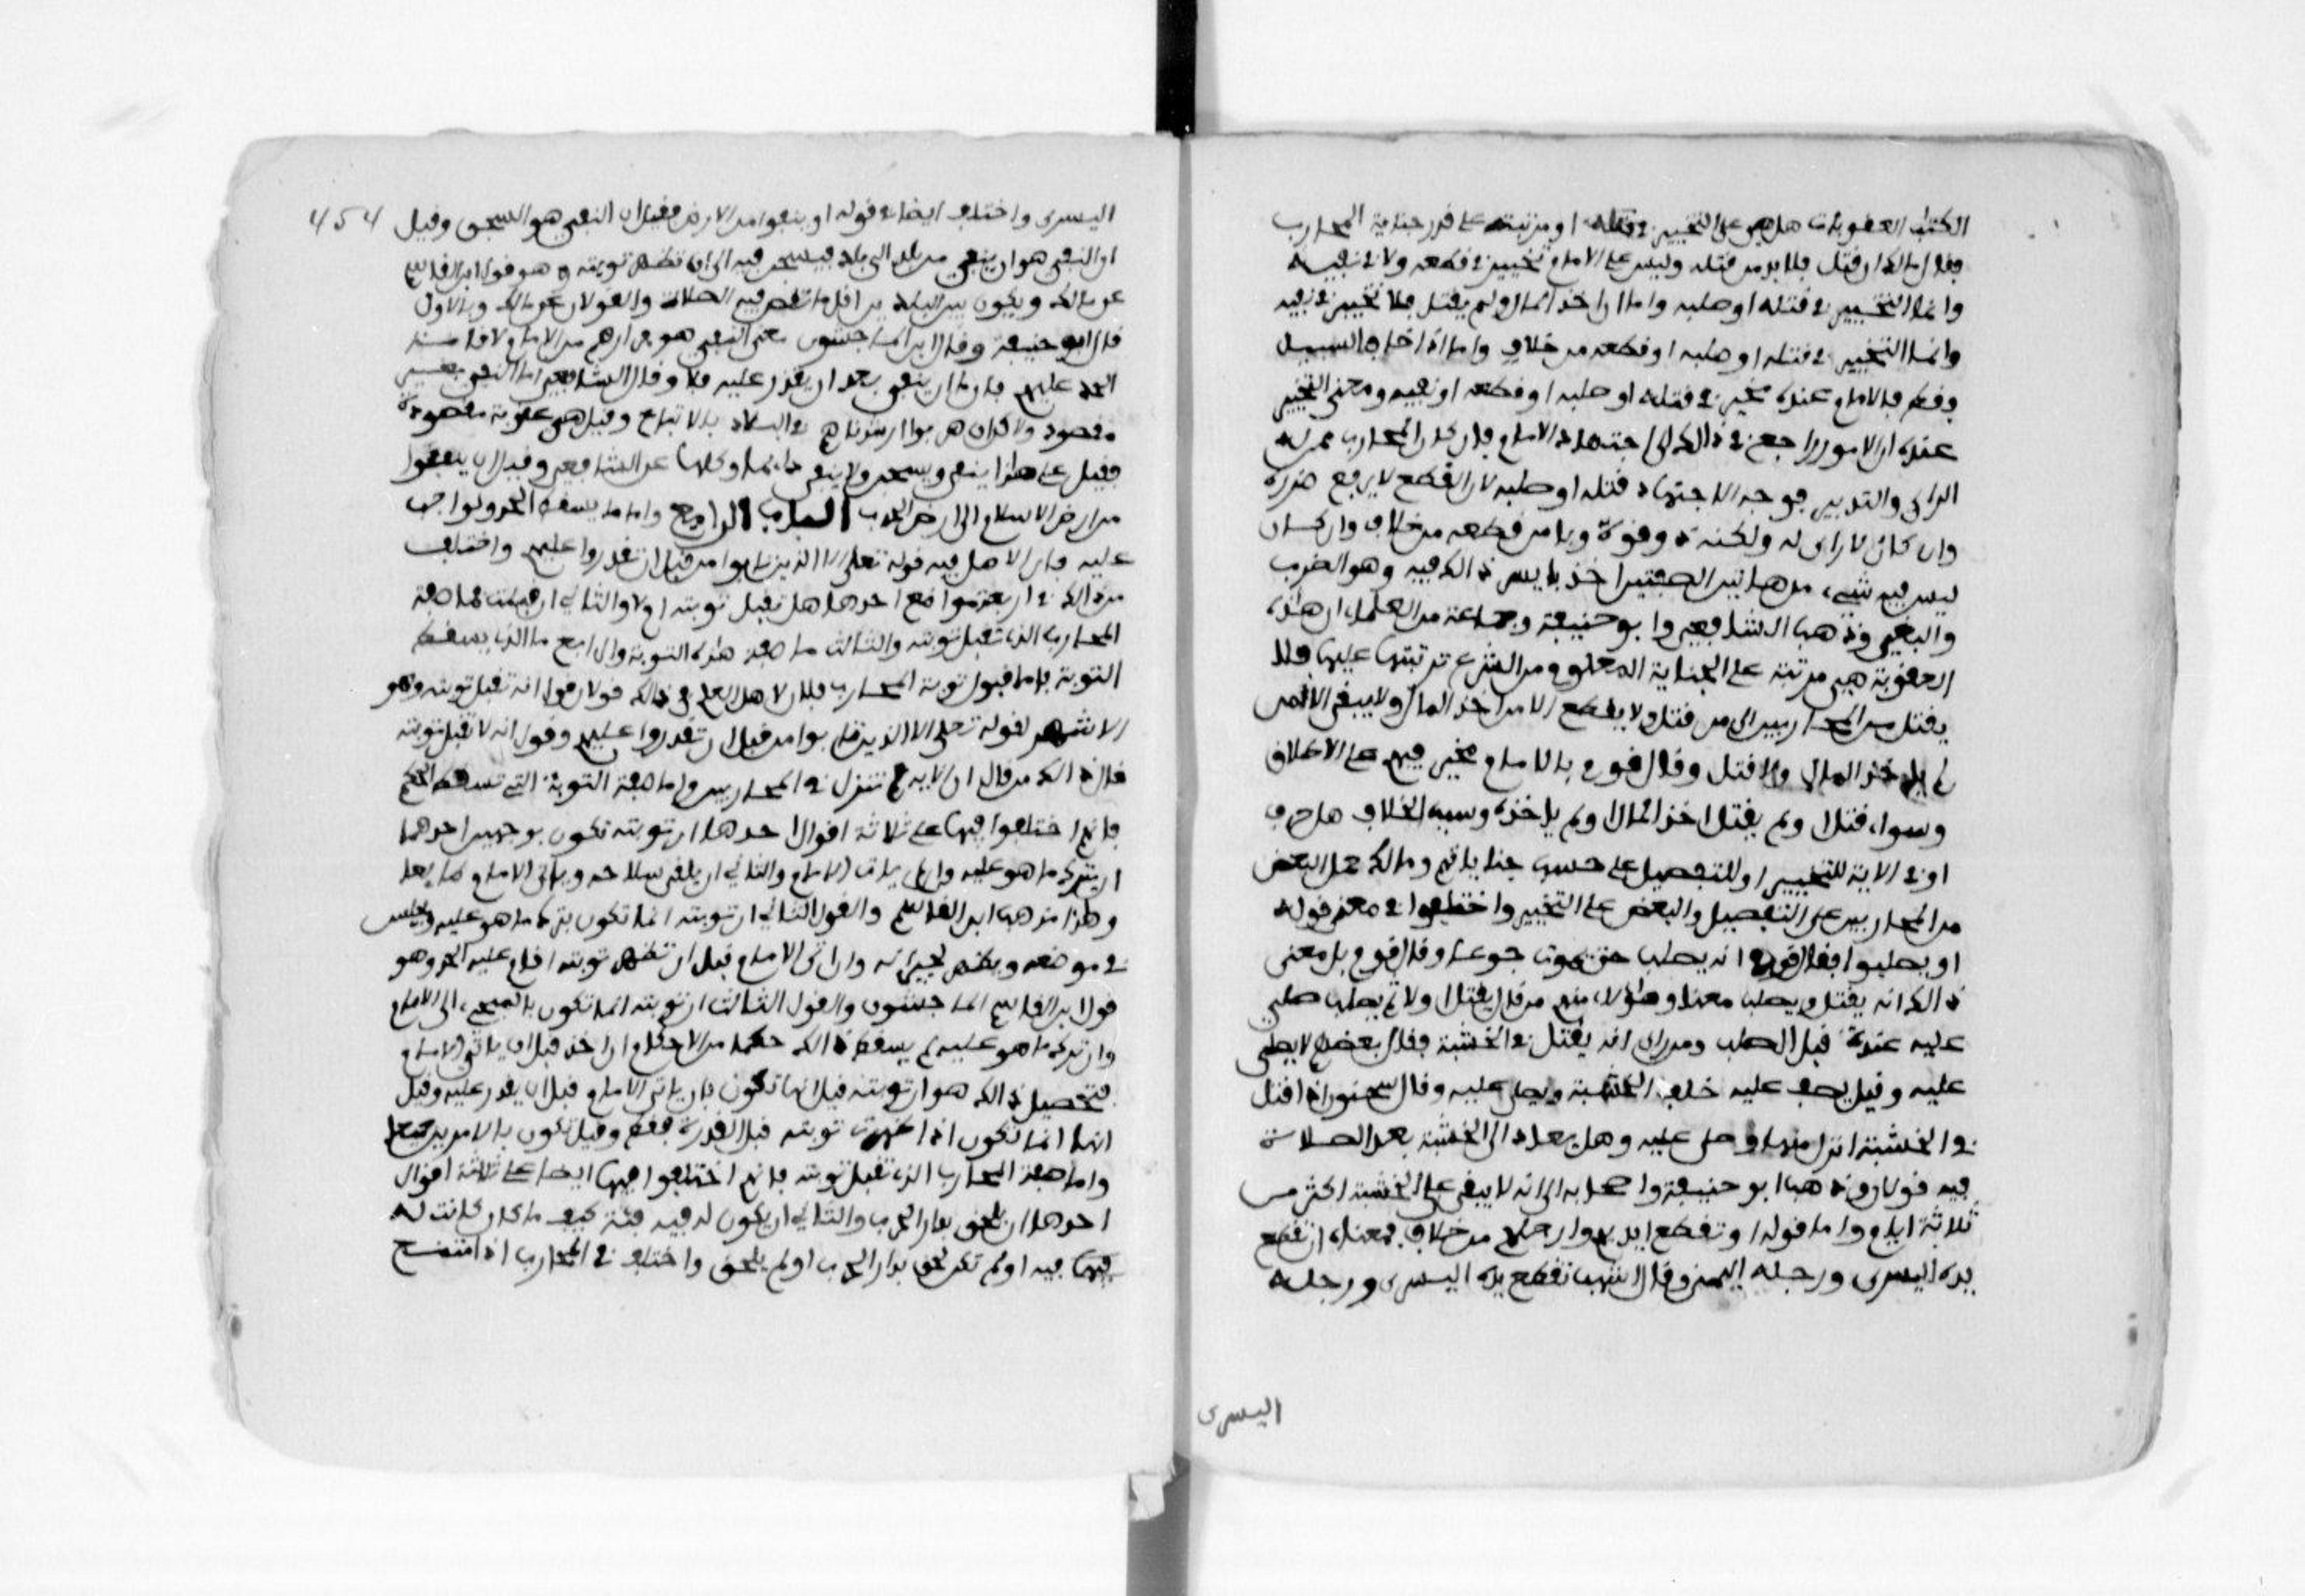 الكتب العقوبات هل هي على التخيير في قتله او مرتبة على قدر جناية المحارب
فقال مالك ان قتل فلابد من قتله وليس على الامام تخيير في قطعه ولا في نفيه
وانما التخيير في قتله او صلبه واما ان اخذ المال ولم يقتل فلا تخيير في نفيه
وانما التخيير في قتله او صلبه او قطعه من خلاف واما اذا اخاف السبيل
وفقط فالامام عنده مخير في قتله او صلبه او قطعه او نفيه ومعنى التخيير
عنده ان الامور راجع في ذالك الى اجتهاد الامام فان كان المحارب ممن له
الراي والتدبير فوجه الاجتهاد قتله او صلبه لان القطع لا يرفع ضرره
وان كان لا راي له ولكنه ذو قوة وبامر قطعه من خلاف وان كان
ليس فيه شيء من هاتين الصفتين اخذ بايسر ذالك فيه وهو الضرب
والنفي وذهب الشافعي وابو حنيفة وجماعة من العلماء ان هذه
العقوبة هي مرتبة على الجناية المعلوم من الشرع ترتبها عليها فلا
يقتل من المحاربين الا من قتل ولا يقطع الا من اخذ المال ولا ينفى الا من
لم ياخذ المال ولا قتل وقال قوم بالامام مخير فيهم على الاطلاق
وسواء قتل او لم يقتل اخذ المال او لم ياخذه وسبب الخلاف هل حرف
او في الاية للتخيير او للتفصيل على حسب جناياتهم ومالك حمل البعض
من المحاربين على التفصيل والبعض على التخيير واختلفوا في معنى قوله
او يصلبوا فقال قوم انه يصلب حتى يموت جوعا وقال قوم بل معنى
ذالك انه يقتل ويصلب معا وهؤلاء منهم من قال يقتل اولا ثم يصلب صلي
عليه عنده قبل الصلب ومن راى انه يقتل في الخشبة فقال بعضهم لا يصلى
عليه وقيل يصف عليه خلف الخشبة ويصلى عليه وقال سحنون اذا قتل
في الخشبة انزل منها وصلى عليه وهل يعاد الى الخشبة بعد الصلاة
فيه قولان وذهب ابو حنيفة واصحابه الى انه لا يبقى على الخشبة اكثر من
ثلاثة ايام واما قوله او تقطع ايديهم وارجلهم من خلاف فمعناه ان تقطع
يده اليسرى ورجله اليمنى وقال اشهب تقطع يده اليسرى ورجله
اليسرى
454
اليسرى واختلف ايضا في قوله او ينفوا من الارض فقيل ان النفي هو السجن وقيل
ان النفي هو ان ينفى من بلد الى بلد فيسجن فيه الى ان تظهر توبته وهو قول ابن القاسم
عن مالك ويكون بين البلدين اقل ما تقصر فيه الصلاة والقولان عن مالك وبالاول
قال ابو حنيفة وقال ابن الماجشون معنى النفي هو فرارهم من الامام لاقامة
الحد عليهم فاما ان ينفى بعد ان يقدر عليه فلا وقال الشافعي اما النفي فغير
مقصود ولاكن ان هربوا شردناهم في البلاد بالاتباع وقيل هي عقوبة مقصودة
فقيل على هذا ينفى ويسجن ولا ينفى دائما وكلها عن الشافعي وقيل ان ينفوا
من ارض الاسلام الى ارض الحرب الباب الرابع واما ما يسقط الحد الواجب
عليه فان الاصل فيه قوله تعلى الا الذين تابوا من قبل ان تقدروا عليهم واختلف
من ذالك في اربعة مواضع احدها هل تقبل توبته او لا والثاني ان قبلت فما صفة
المحارب الذي تقبل توبته والثالث ما صفة هذه التوبة والرابع ما الذي يسقط
التوبة فاما قبول توبة المحارب فلان لاهل العلم في ذالك قولان قول انه تقبل توبته وهو
الاشهر لقوله تعلى الا الذين تابوا من قبل ان تقدروا عليهم وقول انه لا تقبل توبته
قال ذالك من قال ان الاية لم تنزل في المحاربين واما صفة التوبة التي تسقط الحكم
فانهم اختلفوا فيها على ثلاثة اقوال احدها ان توبته تكون بوجهين احدهما
ان يترك ما هو عليه وان لم يات الامام والثاني ان يلقي سلاحه وياتي الامام طايعا
وهذا مذهب ابن القاسم والقول الثاني ان توبته انما تكون بترك ما هو عليه ويجلس
في موضعه ويظهر لجيرانه وان اتى الامام قبل ان تظهر توبته اقام عليه الحد وهو
قول ابن القاسم الماجشون والقول الثالث ان توبته انما تكون بالمجيء الى الامام
وان ترك ما هو عليه لم يسقط ذالك حكما من الاحكام ان اخذ قبل ان ياتي الامام
فتحصيل ذالك هو ان توبته قيل انها تكون بان ياتي الامام قبل ان يقدر عليه وقيل
انها انما تكون اذا ظهرت توبته قبل القدرة فقط وقيل تكون بالامرين جميعا
واما صفة المحارب الذي تقبل توبته فانهم اختلفوا فيها ايضا على ثلاثة اقوال
احدها ان يلحق بدار الحرب والثاني ان يكون له فيه فئة كيف ما كان كانت له
فيها فيه او لم تكن لحق بدار الحرب او لم يلحق واختلف في المحارب اذا امتنع